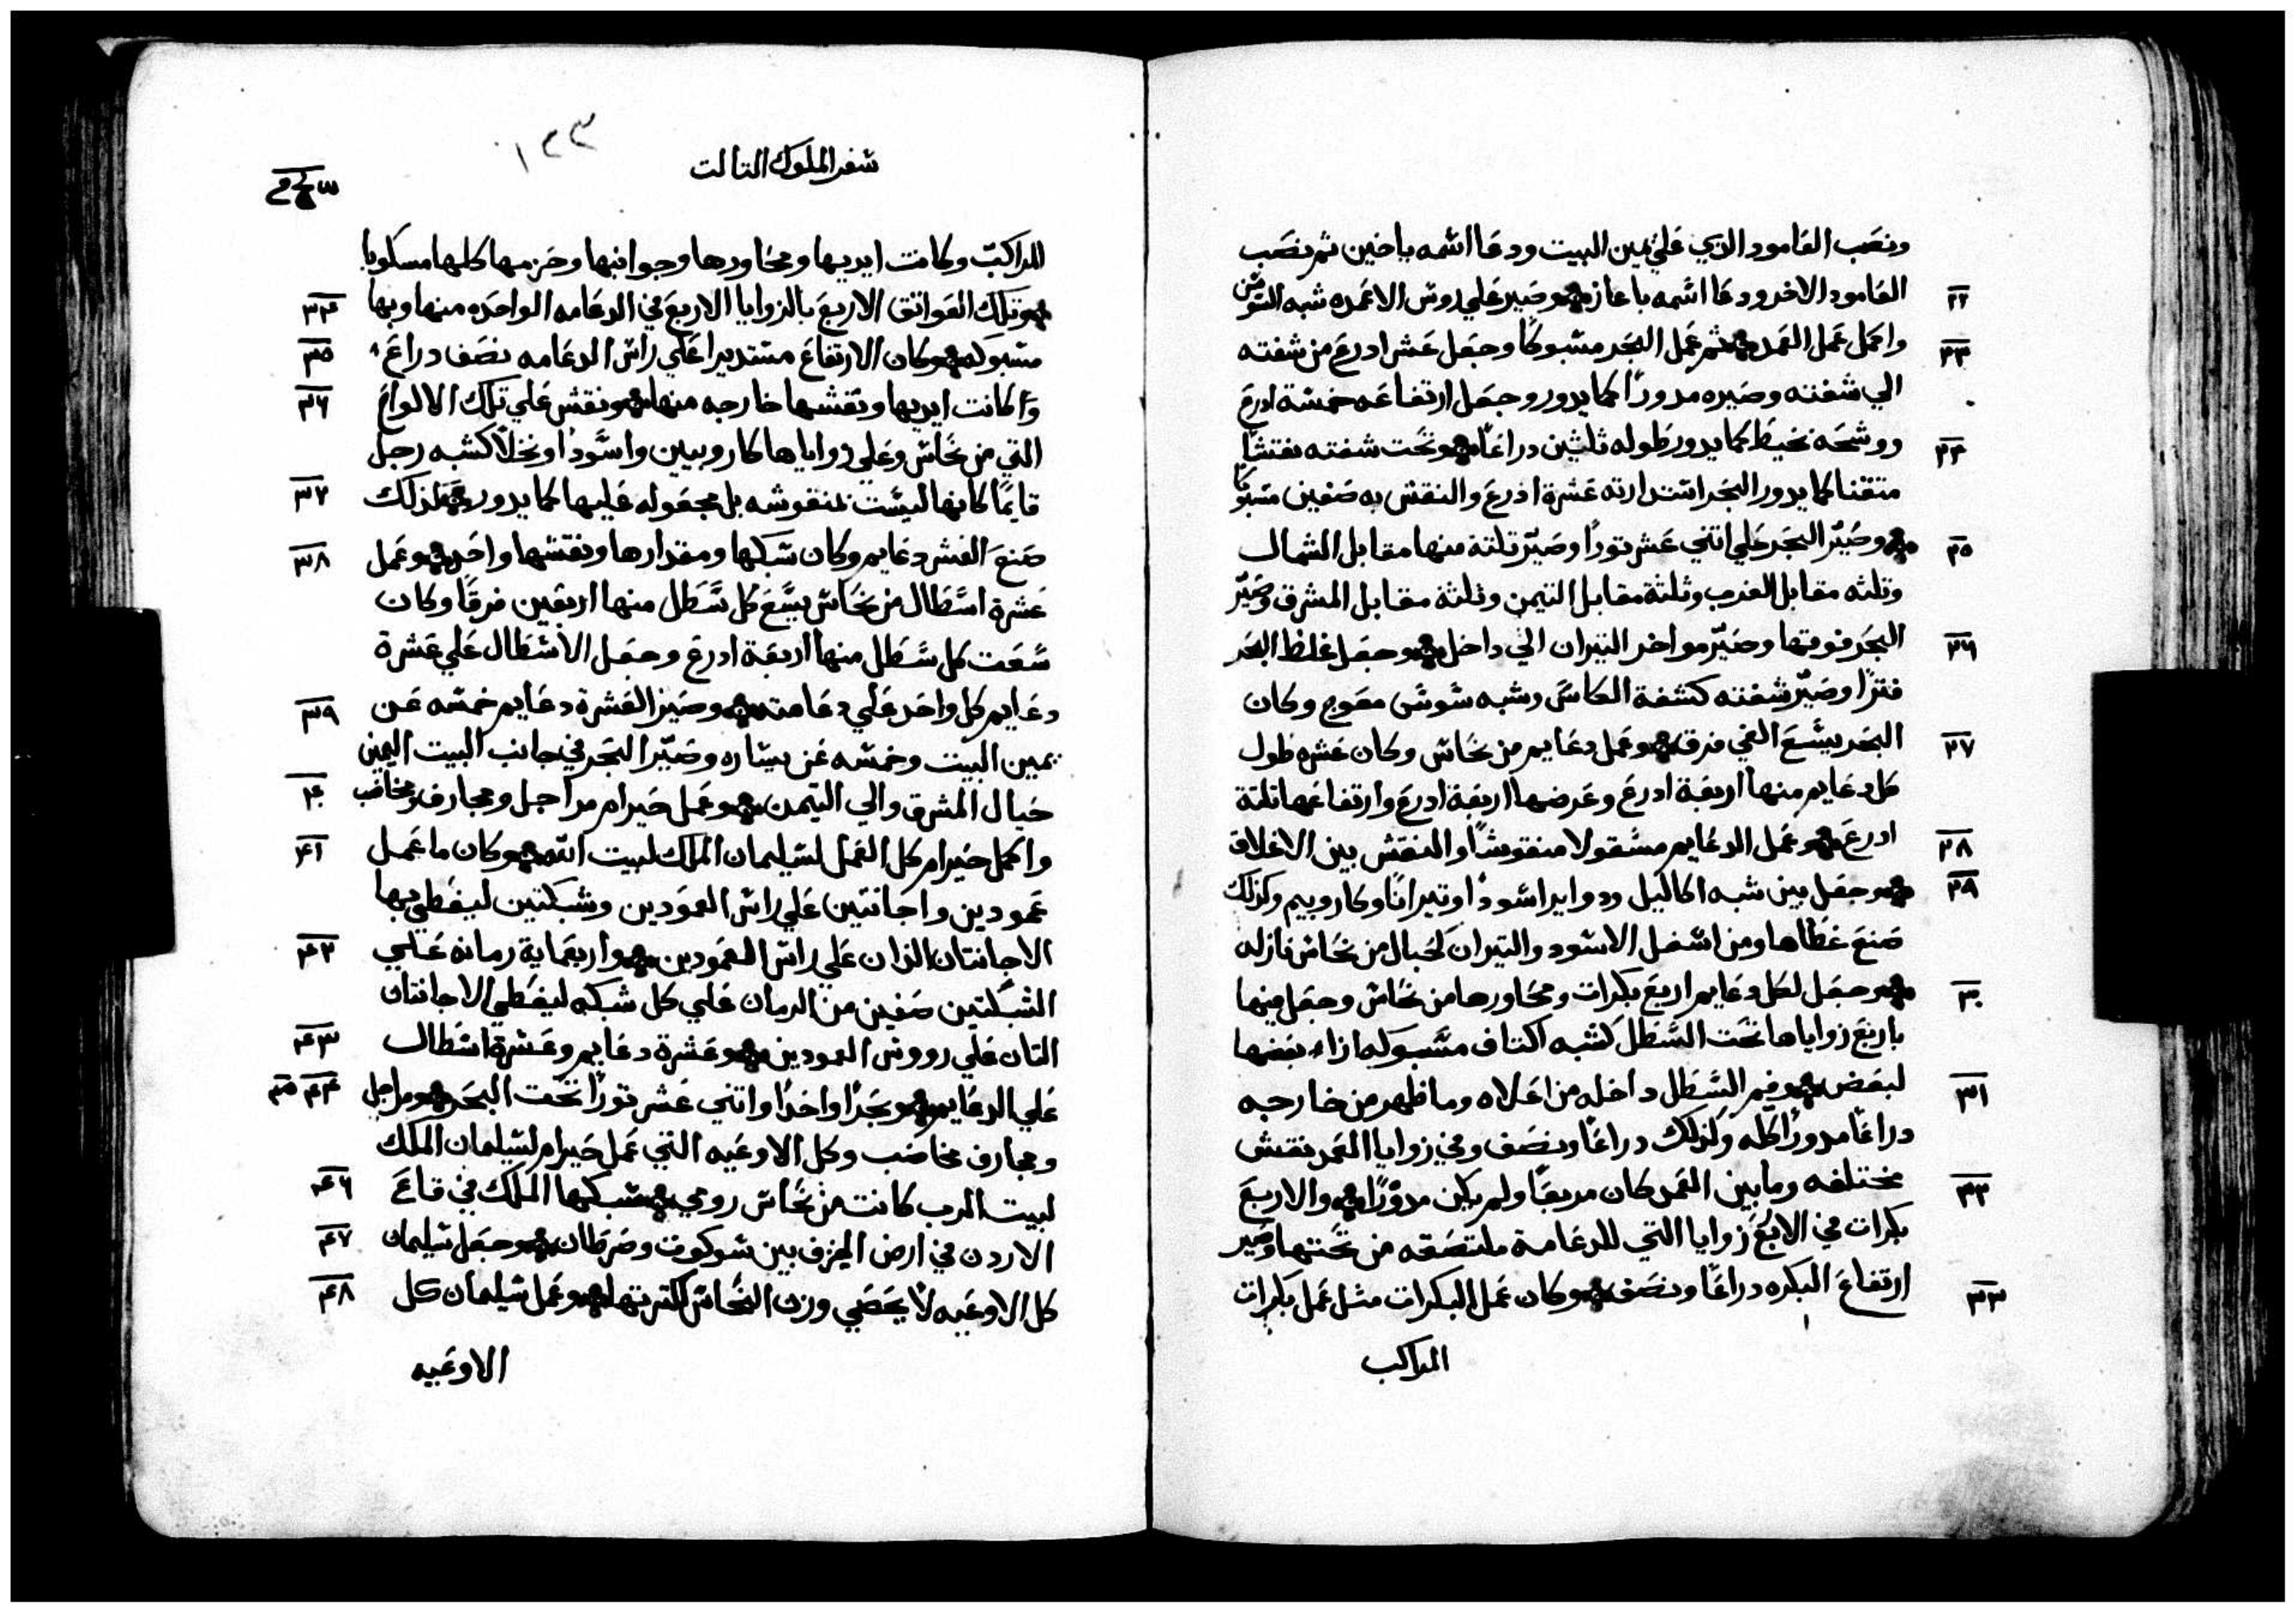 ونصب العامود الذي علي يمين البيت ودعا اسمه ياخين ثم نصب
٢٢ العامود الاخر ودعا اسمه باعاز وصير علي روس الاعمده شبه السوسن
٢٣ واكمل عمل العمد ثم عمل البحر مسبوكا وجعل عشر ادرع من شفته
الي شفته وصيره مدورا كما يدور وجعل ارتفاعه خمسة ادرع
٢٤ ووشحه بخيط كما يدور طوله ثلثين دراعا وتحت شفته نقشا
متقنا كما يدور البحر استدارته عشرة ادرع والنقش به صفين مسبوكا
٢٥ وصير البحر علي اتني عشر تورا وصير تلتة منها مقابل الشمال
وتلثه مقابل الغرب وثلثة مقابل التيمن وثلثة مقابل المشرق وصير
٢٦ البحر فوقها وصير مواخر التيران الي داخل وجعل غلظ البحر
فترا وصير شفته كشفة الكاس وشبه سوسن معوج وكان
٢٧ البحر يسع الفي فرق وعمل دعايم من نحاس وكان عشره طول
كل دعايم منها اربعة ادرع وعرضها اربعة ادرع وارتفاعها تلتة
٢٨ ادرع وعمل الدعايم مسقولا منقوشا والنقش بين الاغلاق
٢٩ وجعل بين شبه اكاليل ودواير اسودا وتيرانا وكاروبيم وكذلك
صنع غطاها ومن اسفل الاسود والتيران كحبال من نحاس نازله
٣٠ وجعل لكل دعايم اربع بكرات ومحاورها من نحاس وجعل فيها
باربع زواياها تحت السطل كشبه اكتاف مسبوكه ازاء بعضها
٣١ لبعض وفم السطل داخله من اعلاه وما ظهر من خارجه
دراعا مدورا كله وكذلك دراعا ونصف وفي زوايا العمد نقش
٣٢ مختلفه وما بين العمد كان مربعا ولم يكن مدورا والاربع
بكرات في الاربع زوايا التي للدعامة ملتصقه من تحتها وصير
٣٣ ارتفاع البكره دراعا ونصف وكان عمل البكرات مثل عمل بكرات
المراكب
سفر الملوك التالت
١٢٣
المراكب وكانت ايديها ومحاورها وجوانبها وحزمها كلها مسكوبا
٣٤ وتلك العواتق الاربع بالزوايا الاربع في الدعامه الواحده منها وبها
٣٥ مسبوكه وكان الارتفاع مستديرا علي راس الدعامه نصف دراع
٣٦ وكانت ايديها ونقشها خارجه منها ونقش علي تلك الالواح
التي من نحاس وعلي زواياها كاروبيين واسودا ونخلا كشبه رجل
٣٧ قايما كانها ليست منقوشه بل مجعوله عليها كما يدور لذلك
٣٨ صنع العشر دعايم وكان سبكها ومقدارها ونقشها واحد وعمل
عشرة اسطال من نحاس يسع كل سطل منها اربعين فرقا وكان
سعت كل سطل منها اربعة ادرع وجعل الاسطال علي عشرة
٣٩ دعايم كل واحد علي دعامته وصير العشرة دعايم خمسه عن
يمين البيت وخمسه عن يساره وصير البحر في جانب البيت اليمين
٤٠ حبال المشرق والي التيمن وعمل حيرام مراجل ومجارف ومخاضب
٤١ واكمل حيرام كل العمل لسليمان الملك لبيت الله وكان ما عمل
عمودين واجانتين علي راس العمودين وشبكتين ليغطي بها
٤٢ الاجانتان الذان علي راس العمودين واربعماية رمانه علي
الشبكتين صفين من الرمان علي كل شبكه ليغطي الاجانتان
٤٣ التان علي رووس العمودين وعشرة دعايم وعشرة اسطال
٤٤ ٤٥ علي الدعايم وبحرا واحدا واتني عشر تورا تحت البحر ومراجل
ومجارف مخاضب وكل الاوعيه التي عمل حيرام لسليمان الملك
٤٦ لبيت الرب كانت من نحاس رومي سبكها الملك في قاع
٤٧ الاردن في ارض الخزف بين سوكوت وصرطان وجعل سليمان
٤٨ كل الاوعيه لا يحصي وزن النحاس لكترتها وعمل سليمان كل
الاوعيه